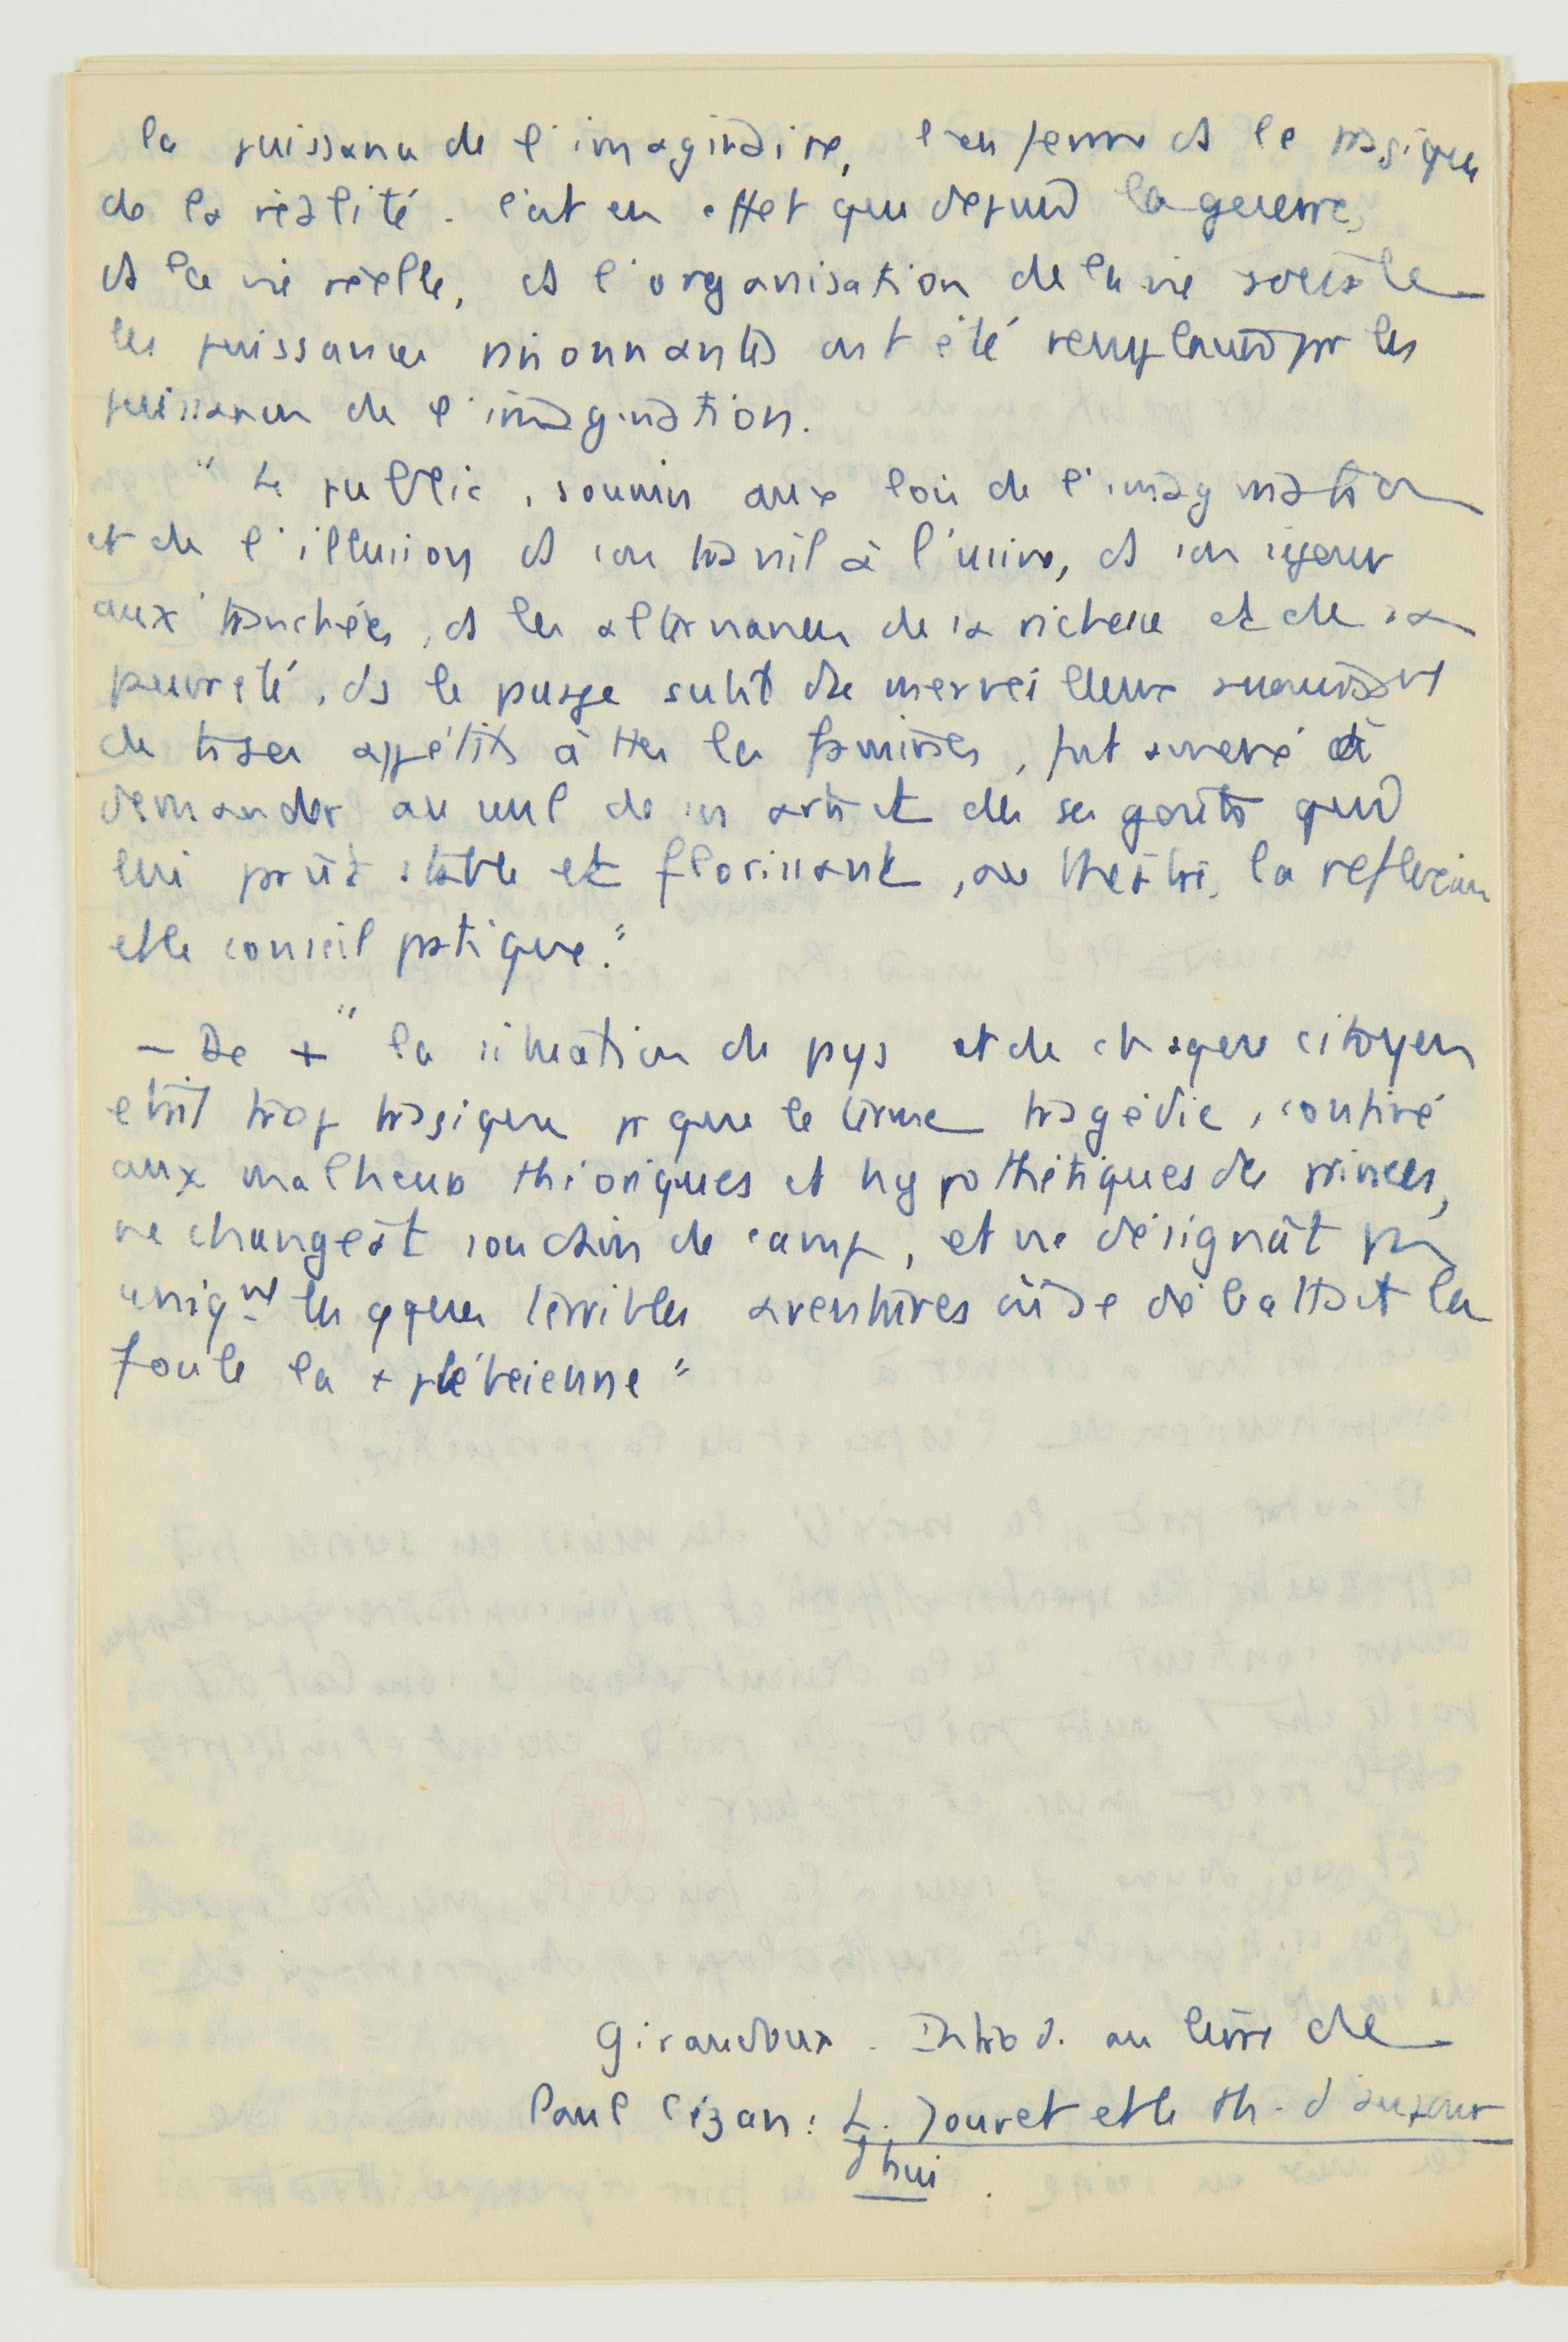 la puissance de l'imaginaire, l'enferme ds le tragique
de la réalité. C'est en effet que depuis la guerre,
ds la vie réelle, ds l'organisation de la vie sociale
les puissances raisonnantes ont été remplacées pr les
puissances de l'imagination.
" Le public, soumis aux lois de l'imagination
et de l'illusion ds son travail à l'usine, ds son séjour
aux tranchées, ds les alternances de sa richesse et de sa
pauvreté, ds le passage subit de merveilleux
de ts ses appétits à ttes les famines, fut amené à
demander au seul de ses arts et de ses goûts qui
lui parût stable et florissant, au théâtre, la réflexion
et le conseil pratique."
- De + " la situation du pays et de chaque citoyen
était trop tragique pr que le terme tragédie, confiné
aux malheurs théoriques et hypothétiques des princes,
ne changeât soudain de camp, et ne désignât pas
uniqnt les qques terribles aventures où se débattait la
foule la + plébéienne "
Giraudoux. Introd. au livre de
Paul Cézan : L. Jouvet et le th. d'aujour
d'hui.